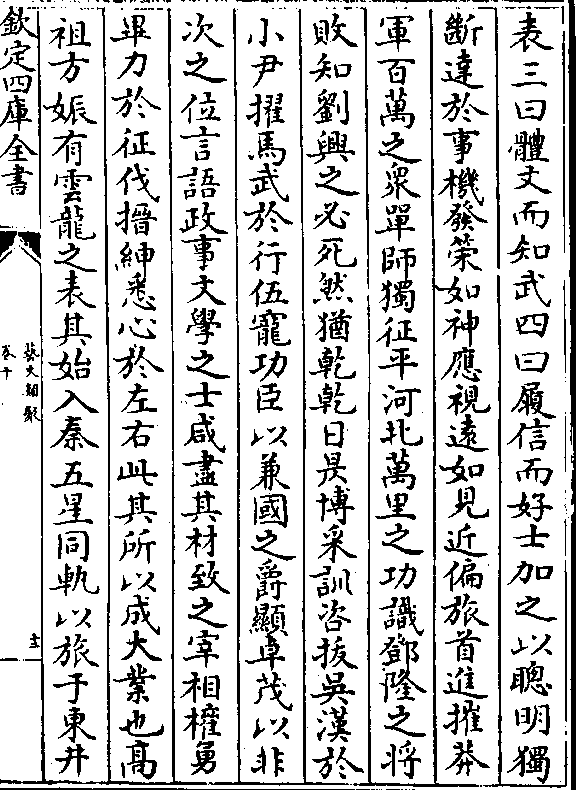 表三曰體文而知武四曰履信而好士加之以聰明獨
斷達於事機發策如神應視遠如見近偏旅首進摧莽
軍百萬之衆單師獨征平河北萬里之功識鄧隆之將
敗知劉興之必死然猶乾乾日昃博采訓咨拔吳漢於
小尹擢馬武於行伍寵功臣以兼國之爵顯卓茂以非
次之位言語政事文學之士咸盡其材致之宰相權勇
畢力於征伐搢紳悉心於左右此其所以成大業也高
祖方娠有雲龍之表其始入秦五星同軌以旅于東井
欽定四庫全書
藝文類聚
卷十
十三